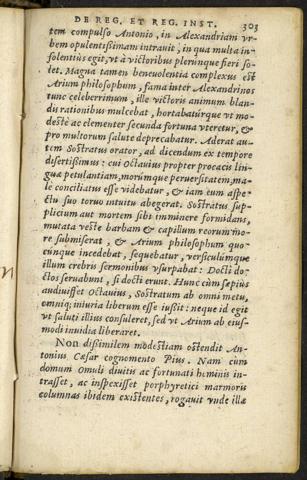 DE REG. ET REG. INST. 303
tem compulso Antonio, in Alexandriam vr-
bem opulentissimam intrauit, in qua multa in-
solentiùs egit, vt à victoribus plerunque fieri so-
let. Magna tamen beneuolentia complexus est
Arium philosophum, fama inter Alexandrinos
tunc celeberrimum, ille victoris animum blan-
dis rationibus mulcebat, hortabatúrque vt mo-
destè ac clementer secunda fortuna vteretur, &
pro multorum salute deprecabatur. Aderat au-
tem Sostratus orator, ad dicendum ex tempore
desertissimus: cui Octauius propter procacis lin-
guæ petulantiam, morúmque peruersitatem, ma-
le conciliatus esse videbatur, & iam eum aspe-
ctu suo toruo intuitu abegerat. Sostratus sup-
plicium aut mortem sibi imminere formidans,
mutata veste barbam & capillum reorum mo-
re submiserat, & Arium philosophum quo-
cunque incedebat, sequebatur, versiculúmque
illum crebris sermonibus vsurpabat: Docti do-
ctos seruabunt, si docti erunt. Hunc cùm sæpius
audiuisset Octauius, Sostratum ab omni metu,
omníq; iniuria liberum esse iussit: neque id egit
vt saluti illius consuleret, sed vt Arium ab eius-
modi inuidia liberaret.
Non dissimilem modestiam ostendit An-
tonius Cæsar cognomento Pius. Nam cùm
domum Omuli diuitis ac fortunati hominis in-
trasset, ac inspexisset porphyretici marmoris
columnas ibidem existentes, rogauit vnde illæ